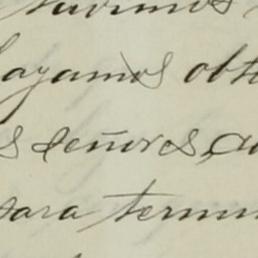 hayamos obt
s señores, cu
para termin